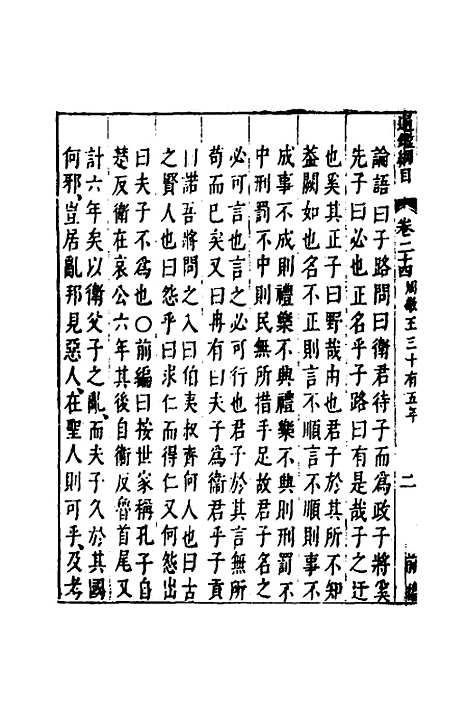 通鑑綱目 卷二十四 周敬王三十有五年 二 前編
論語曰子路問曰衛君待子而為政子將奚
先子曰必也正名乎子路曰有是哉子之迂
也奚其正子曰野哉由也君子於其所不知
蓋闕如也名不正則言不順言不順則事不
成事不成則禮樂不興禮樂不興則刑罰不
中刑罰不中則民無所措手足故君子名之
必可言也言之必可行也君子於其言無所
苟而已矣又曰冉有曰夫子為衞君乎子貢
曰諾吾將問之入曰伯夷叔齊何人也曰古
之賢人也曰怨乎曰求仁而得仁又何怨出
曰夫子不為也〇前編曰按世家稱孔子自
楚反衛在哀公六年其後自衛反魯首尾又
計六年矣以衛父子之亂、而夫子久於其國
何邪、豈居亂邦見惡人、在聖人則可乎、及考